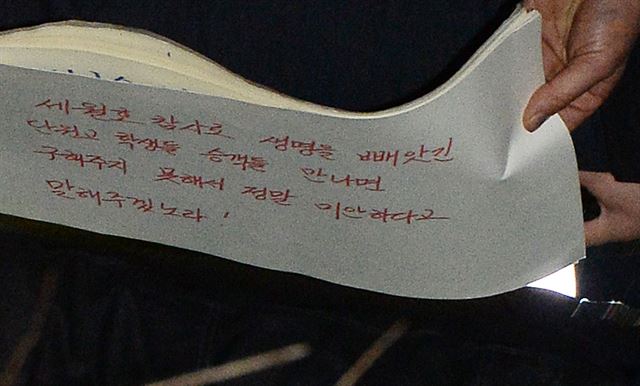 세월호 참사로 생명을 빼앗긴
단원고 학생들 승객들 만나면
구해주지 못해서 정말 미안하다고
말해주겠노라!